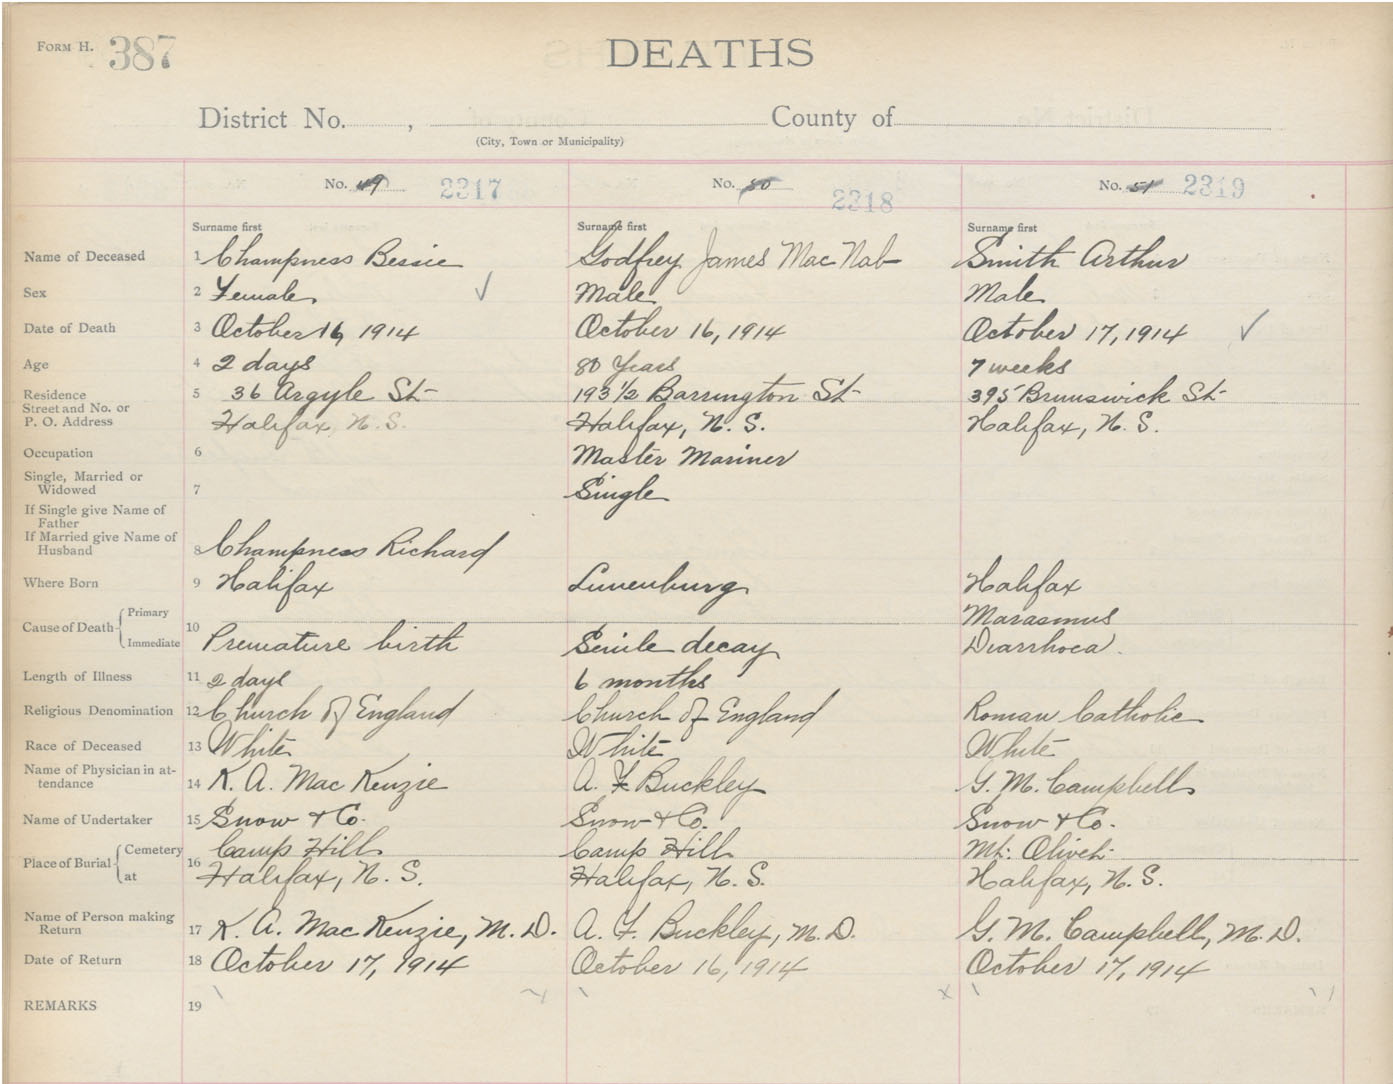 FORM H. 387 DEATHS
District No. , County of
(City, Town or Municipality)
No. 49 2317 No. 50 2318 No. 51 2319
Surname first Surname first Surname first
Name of Deceased 1 Champness Bessie Godfrey James Mac Nab Smith Arthur
Sex 2 Female Male Male
Date of Death 3 October 16, 1914 October 16, 1914 October 17, 1914
Age 4 2 days 80 Years 7 weeks
Residence 5 36 Argyle St 193 1/2 Barrington St 395 Brunswick St
Street and No. or
P. O. Address Halifax, N. S. Halifax, N. S. Halifax, N. S.
Occupation 6 Master Mariner
Single, Married or
Widowed 7 Single
If Single give Name of
Father
If Married give Name of
Husband 8 Champness Richard
Where Born 9 Halifax Lunenburg Halifax
Primary Marasmus
Cause of Death 10
Immediate Premature birth Senile decay Diarrhoea.
Length of Illness 11 2 days 6 months
Religious Denomination 12 Church of England Church of England Roman Catholic
Race of Deceased 13 White White White
Name of Physician in at-
tendance 14 K. A. Mac Kenzie A. F. Buckley G. M. Campbell
Name of Undertaker 15 Snow & Co. Snow & Co. Snow & Co.
Cemetery Camp Hill Camp Hill Mt. Olivet
Place of Burial 16
at Halifax, N. S. Halifax, N. S. Halifax, N. S.
Name of Person making
Return 17 K. A. Mac Kenzie, M. D. A. F. Buckley, M. D. G. M. Campbell, M. D.
Date of Return 18 October 17, 1914 October 16, 1914 October 17, 1914
REMARKS 19